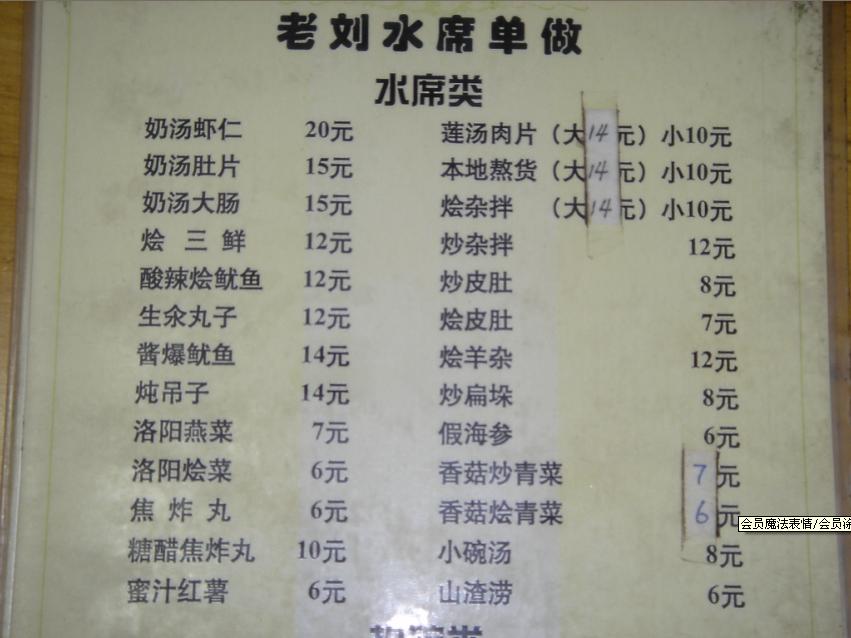 老刘水席单做
水席类
奶汤虾仁 20元 莲汤肉片（大14元）小10元
奶汤肚片 15元 本地熬货（大14元）小10元
奶汤大肠 15元 烩杂拌 （大14元）小10元
烩 三 鲜 12元 炒杂拌 12元
酸辣烩鱿鱼 12元 炒皮肚 8元
生汆丸子 12元 烩皮肚 7元
酱爆鱿鱼 14元 烩羊杂 12元
炖吊子 14元 炒扁垛 8元
洛阳燕菜 7元 假海参 6元
洛阳烩菜 6元 香菇炒青菜 7元
焦 炸 丸 6元 香菇烩青菜 6元
会员魔法表情/会员
糖醋焦炸丸 10元 小碗汤 8元
蜜汁红薯 6元 山渣涝 6元